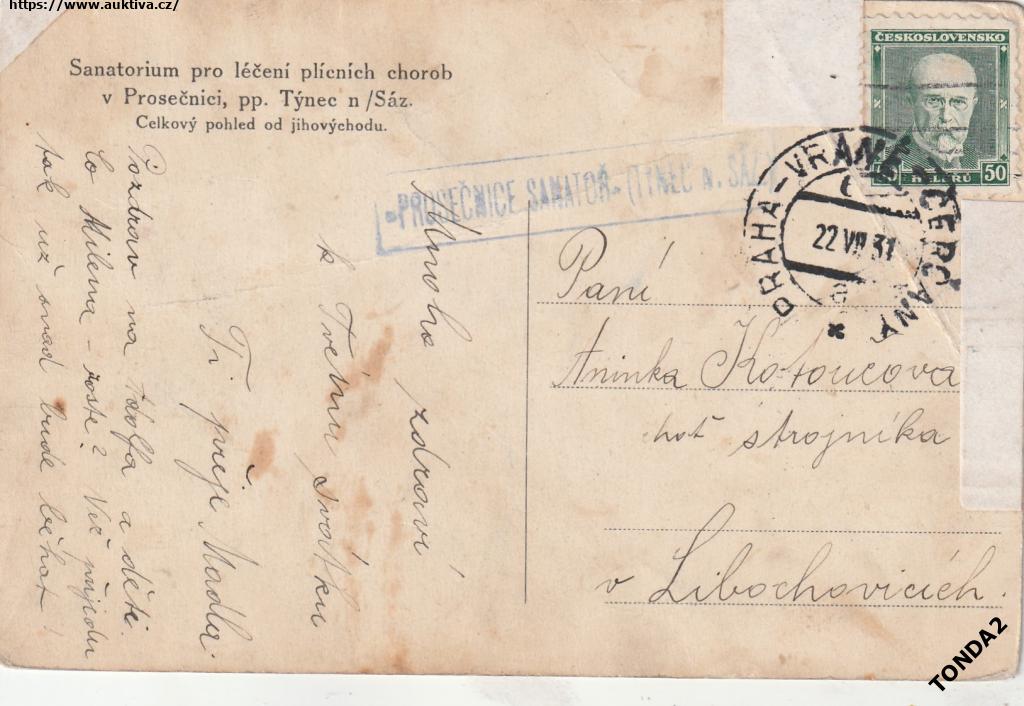 https://www.auktiva.cz/
Sanatorium pro léčení plícních chorob
v Prosečnici, pp. Týnec n/Sáz.
Celkový pohled od jihovýchodu.
ČESKOSLOVENSKO
50 HALÉŘŮ 50
PROSEČNICE SANATOŘ. (TÝNEC N. SÁZ.)
PRAHA-VRANÉ-ČERČANY
22 VII 31
Mnoho zdraví
k Tvému svátku
Ti přeje Madla
Pozdrav na Adolfa a děti.
Co Milena – roste? Než přijedu
tak už snad bude běhat!
Paní
Aninka Kotoucova
choť strojníka
v Libochovicích.
TONDA2